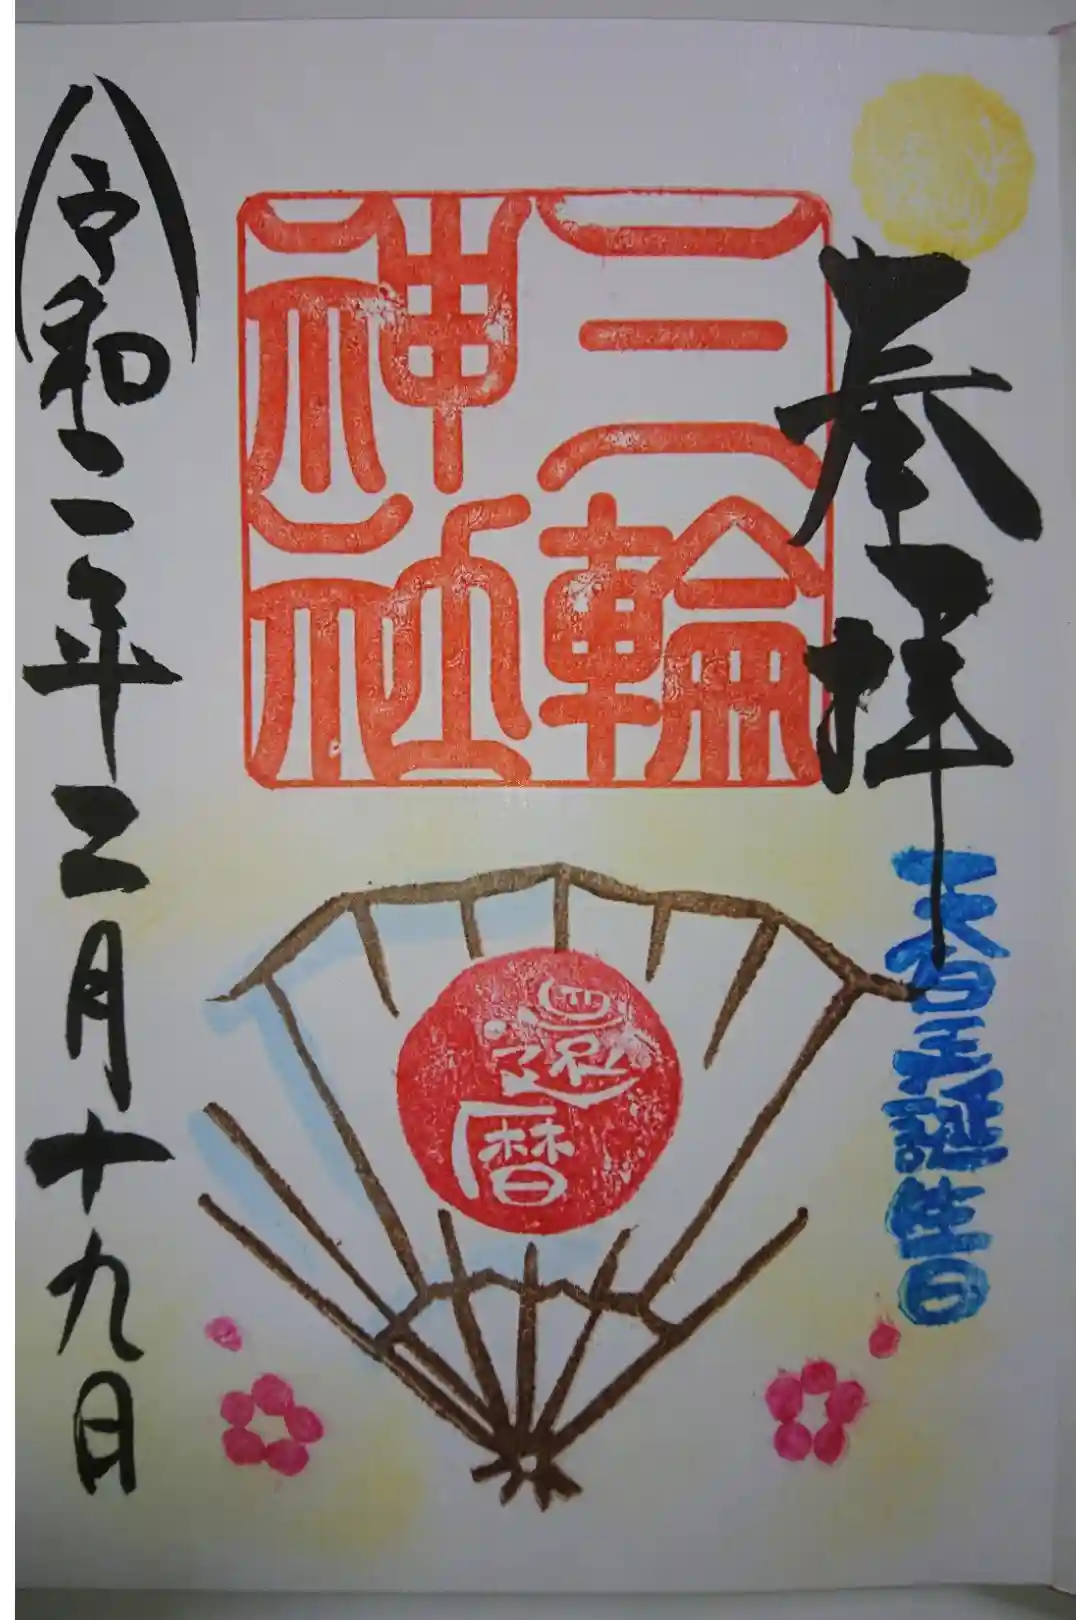 奉拝
天皇誕生日
三輪
神社
還
暦
令和二年二月十九日